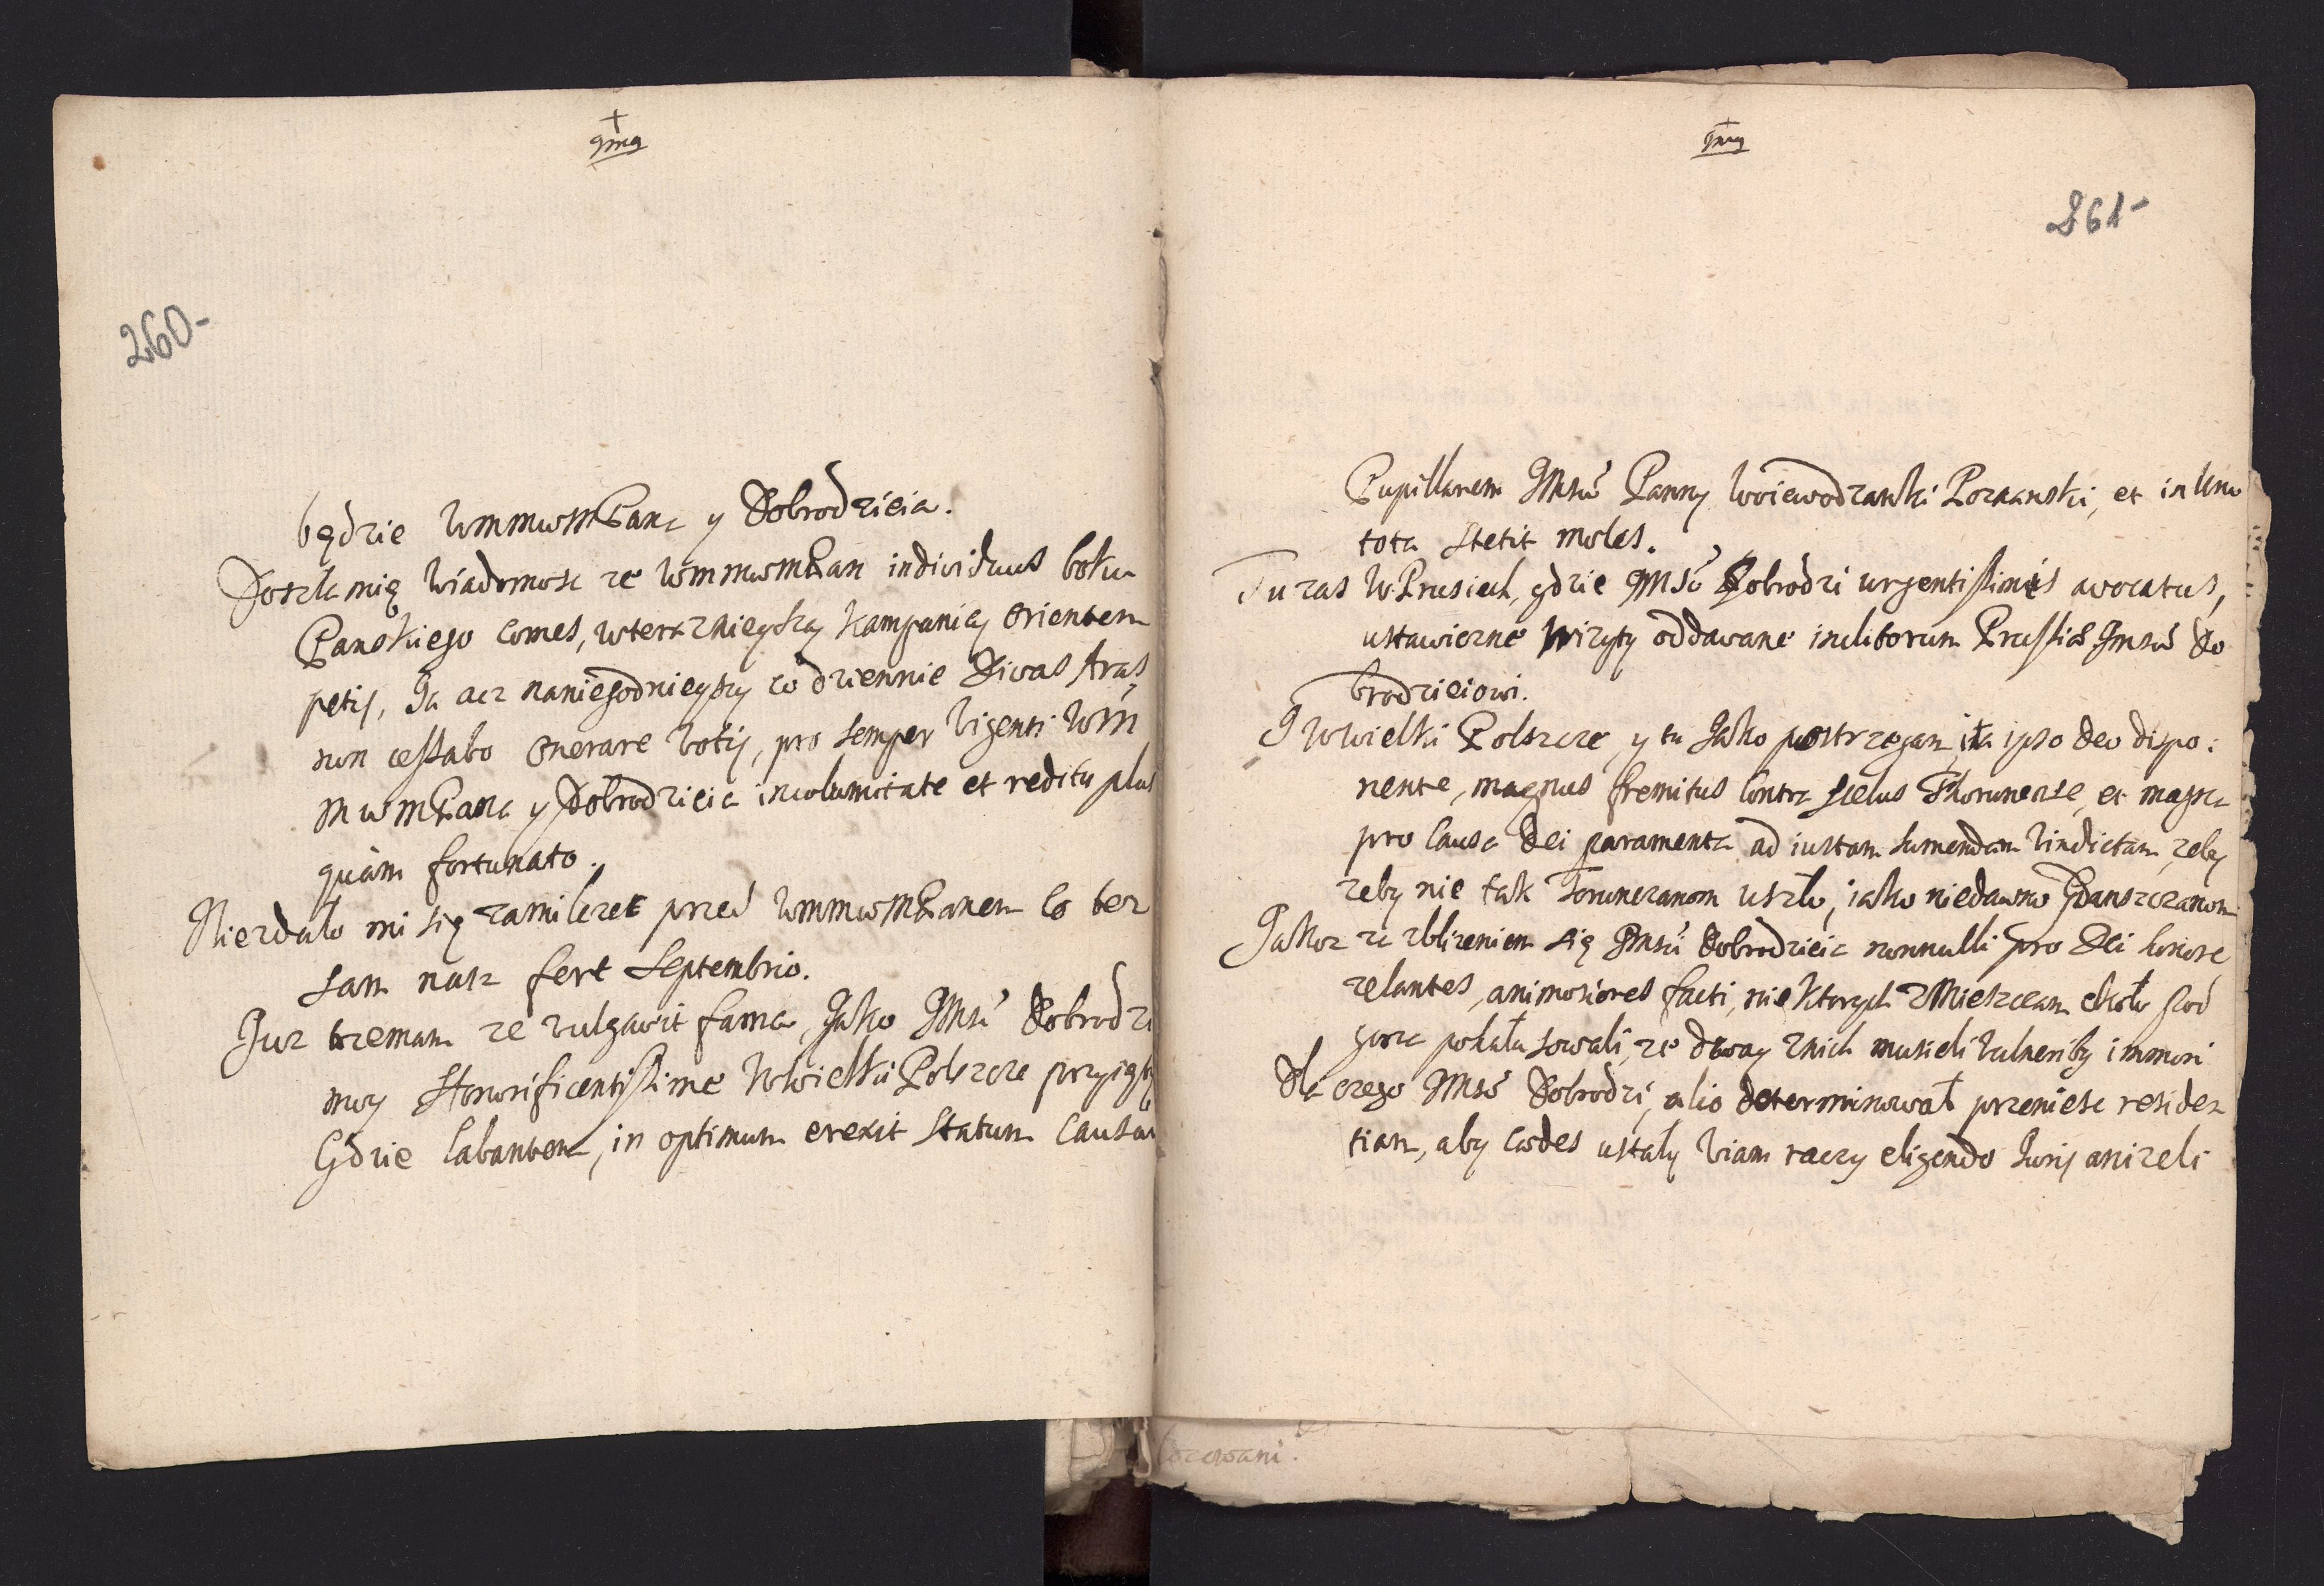 +
Jmg
260-
będzie WmmwmPana y Dobrodzieia.
Doszła mię Wiadomosc ze WmmwmPan individuus boku
Panskiego Comes, wteraznieyszy Kampaniey Orientem
petis, Ja acz naniegodnieyszy co dziennie Divas Aras
non cessabo Onerare Votis, pro semper Vigenti Wm
MwmPana y Dobrodzieia incolumitate et reditu plus
quàm fortunato.
Niezdało mi się zamilczet przed WmmwmPanem Co ber
sam nasz fert Septembris.
Juz trzemam ze vulgavit fama, Jako JMsć Dobrodzi
moy Honorificentissime WWielki Polszcze przyięty
Gdzie labantem, in optimum erexit Statum Causam
+
Jmg
261-
Pupillarem JMsci Panny Woiewodzanki Poznanski, et in Uno
tota Stetit moles.
Tu zas W Prusiech, gdzie JMsć Dobrodzi urgentissimis avocatus,
ustawiczne Wizyty oddawane inclitorum Prussiae Jmsci Do
brodzieiowi.
J WWielki Polszcze, y tu Jako postrzegam, ita ipso Deo dispo:
nente, magnus fremitus Contra scelus Thorunense, et magna
pro Causa Dei paramenta ad iustam sumendam Vindictam, zeby
zeby nie tak Torunczanom uszło, iako niedawno Gdanszczanom
Jakoz za zblizeniem się JMsci Dobrodzieia nonnulli pro Dei honore
zelantes, animosiores facti, niektorych zMieszczan około pod
gorza pokałasowali, ze dway znich musieli Vulneribus immori
Dla czego JMsć Dobrodzi, alio determinował przeniesc residen
tiam, aby caedes ustały Viam raczy eligendo Juris anizeli
cocowani.